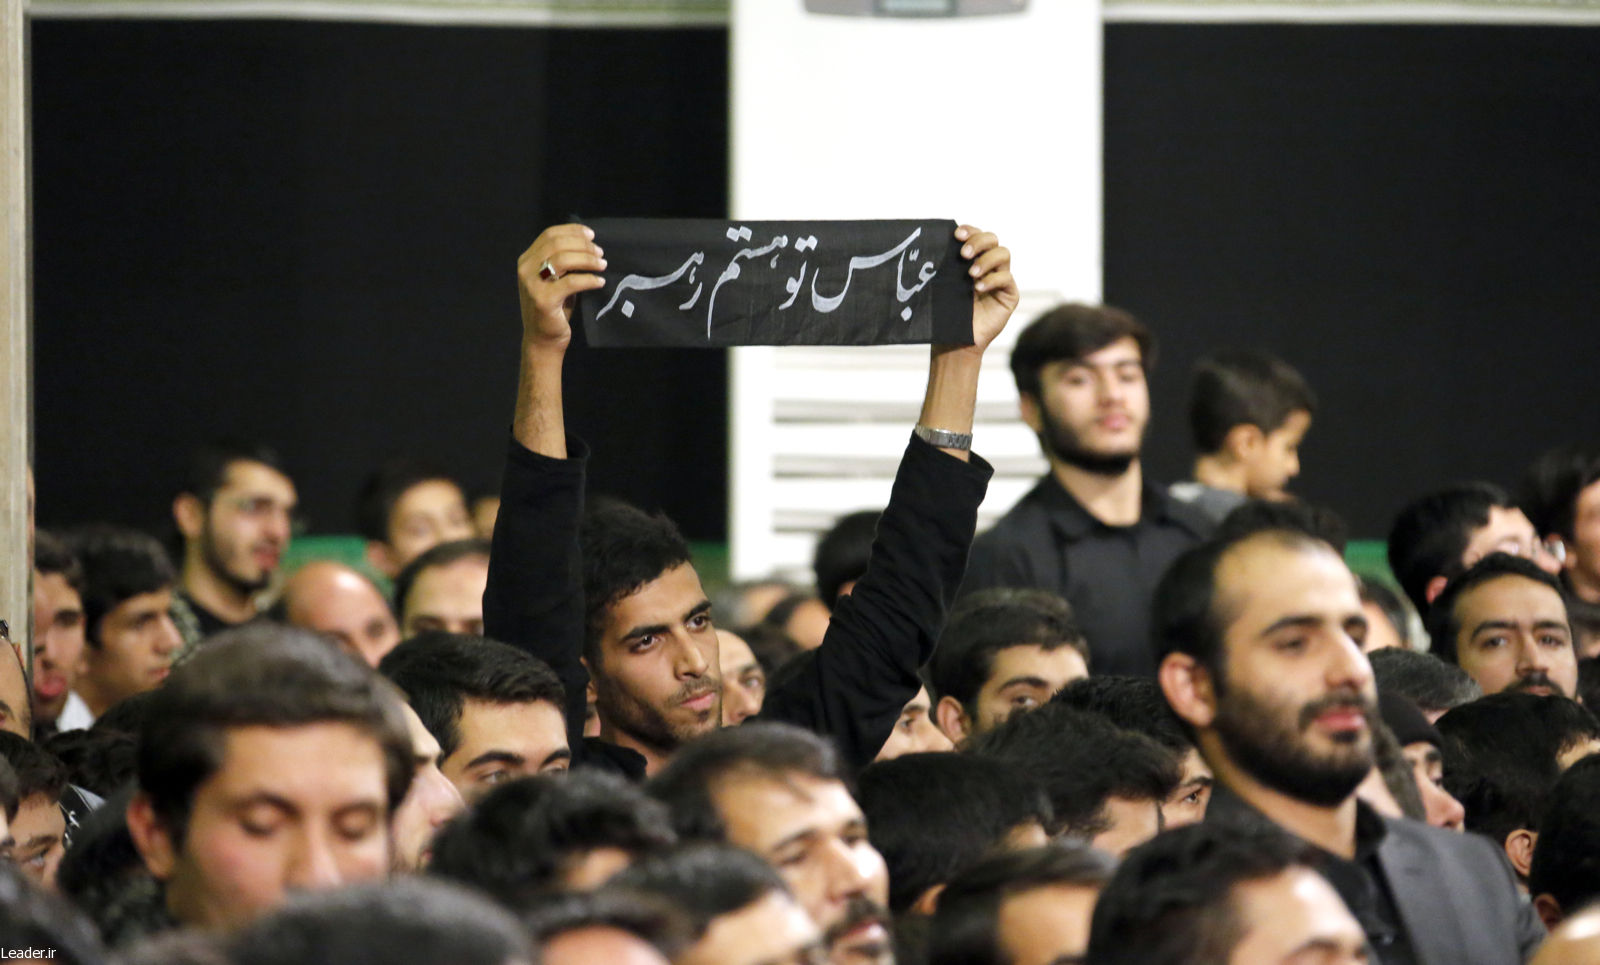 عبّاس تو هستم رهبر
Leader.ir